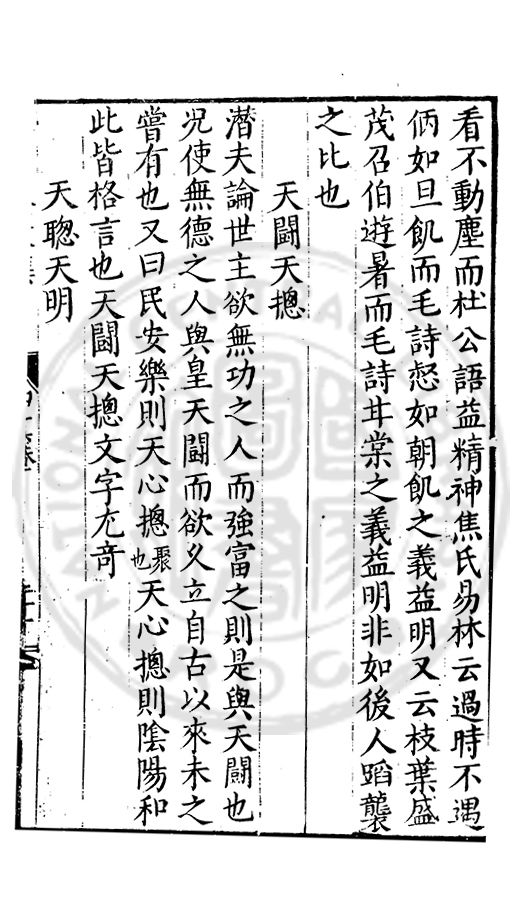 看不動塵而杜公語益精神焦氏易林云過時不遇
偭如旦飢而毛詩惄如朝飢之義益明又云枝葉盛
茂召伯遊暑而毛詩甘棠之義益明非如後人蹈襲
之比也
天鬪天揔
潛夫論世主欲無功之人而強富之則是與天鬪也
况使無德之人與皇天鬪而欲久立自古以來未之
嘗有也又曰民安樂則天心揔聚也天心揔則陰陽和
此皆格言也天鬪天揔文字尤竒
天聰天明